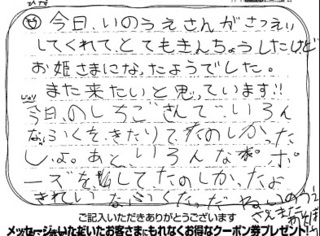 今日、いのうえさんがさつえい
してくれて、とてもきんちょうしたけど
お姫さまになたようでした。
また来たいと思っています!!
今日、のしちごさんで、いろん
なふくを、きたりて、たのしかった
しょ。あといろんなポ
ーズをしてたのしかったよ
きれいなふくだった
ご記入いただきありがとうございます
メッセージをいただいたお客さまにもれなくお得なクーポン券プレゼント!